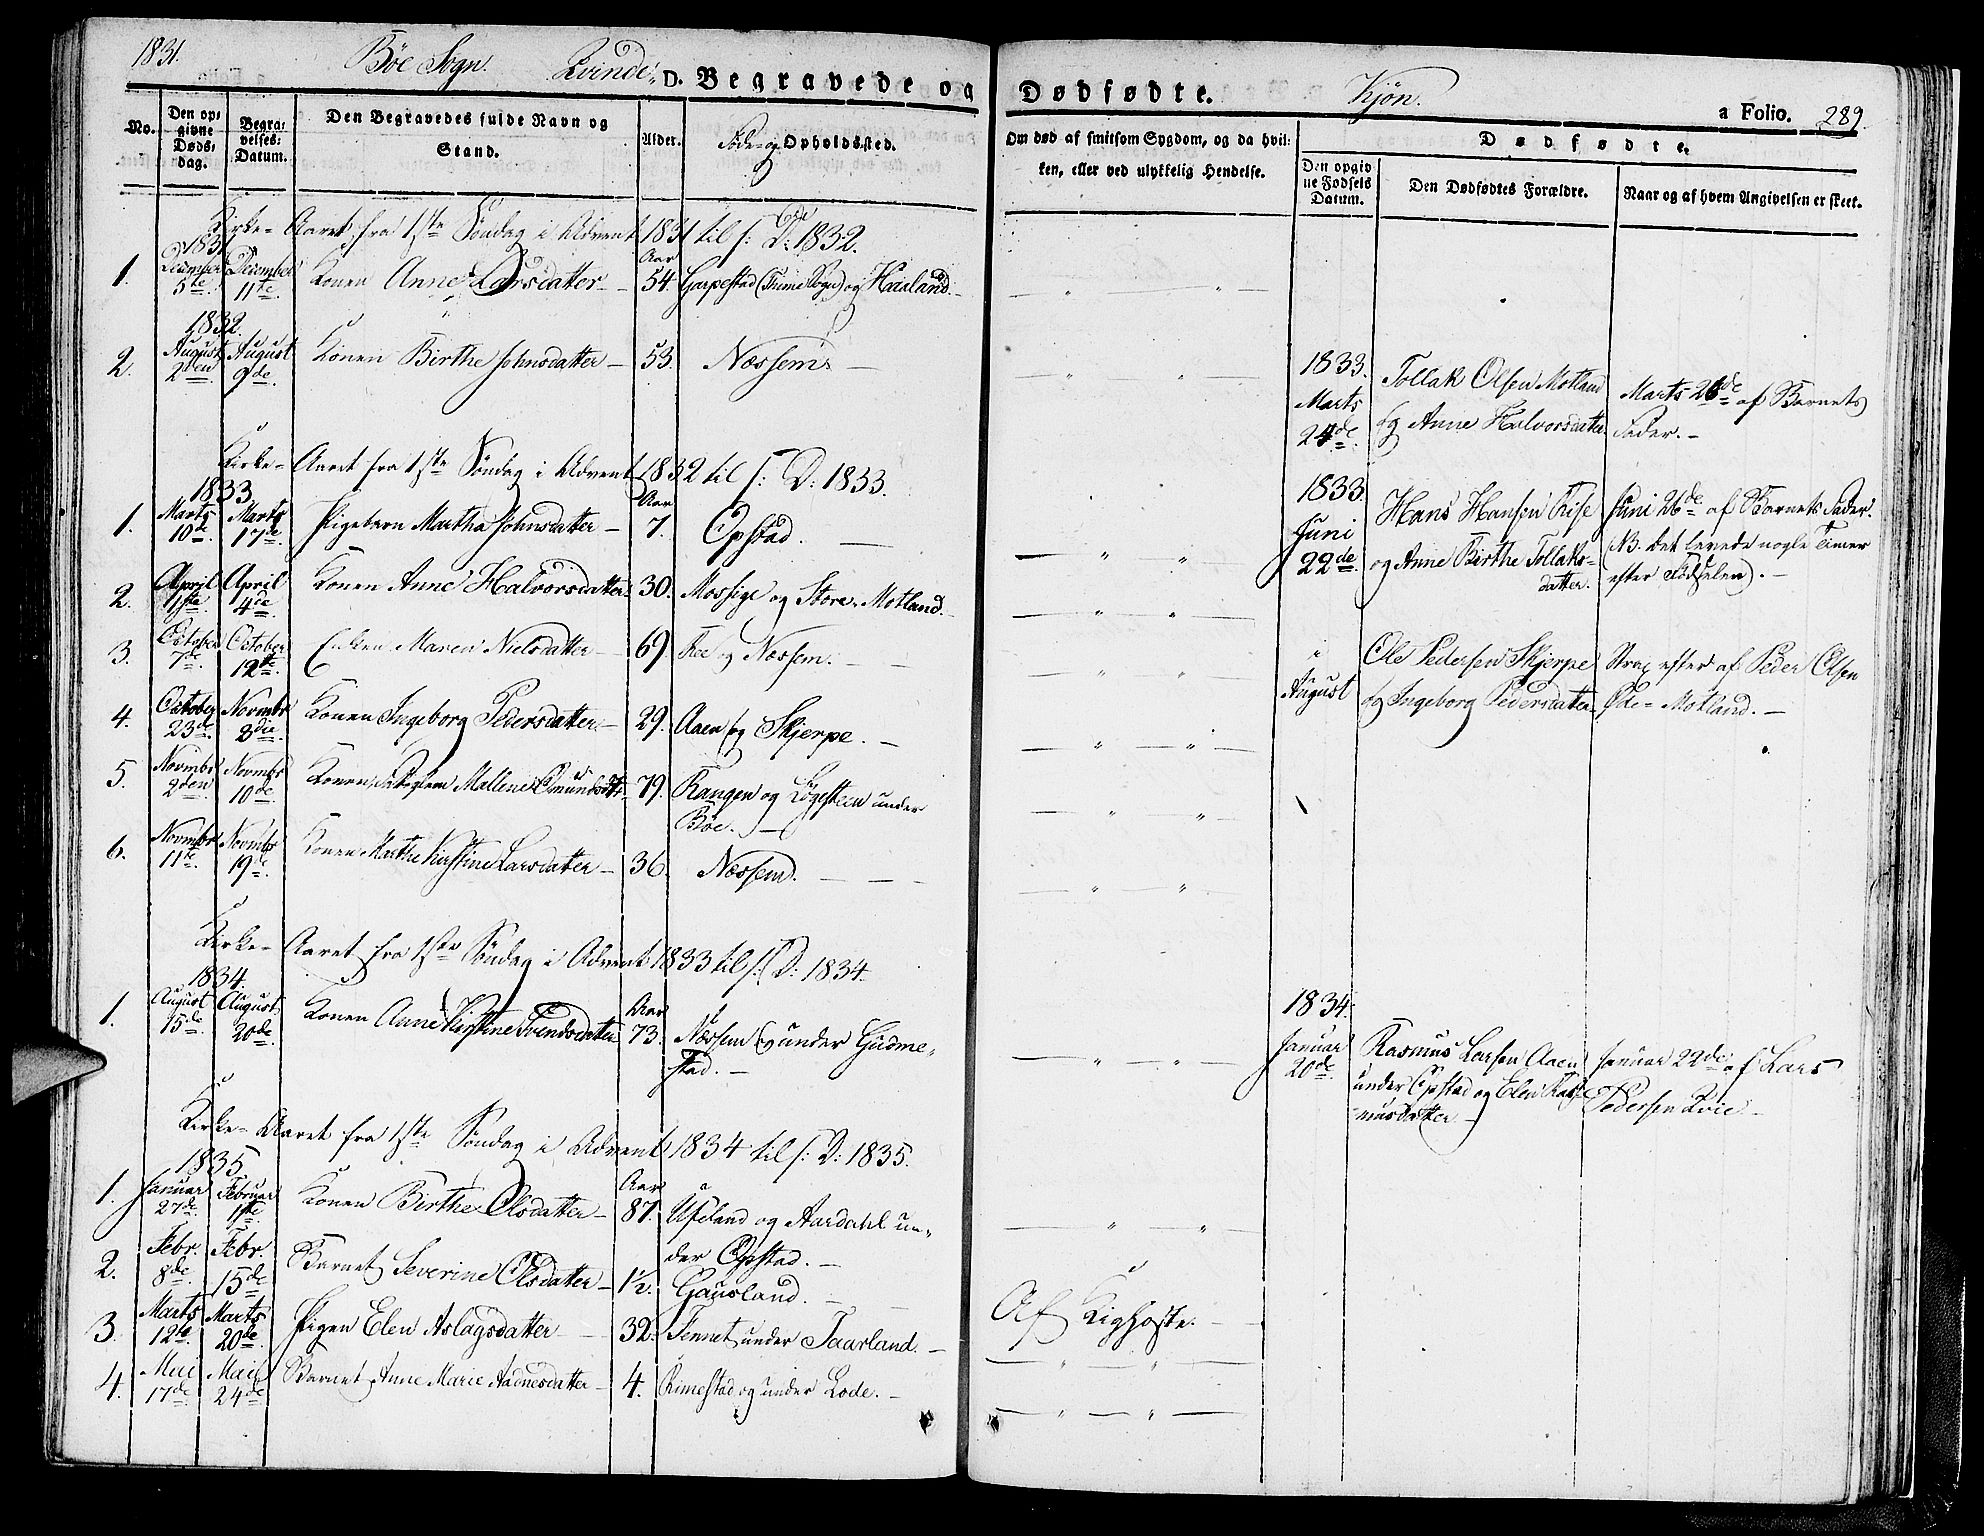 1831.
Bøe Sogn.
Qvinde-
D. Begravede og
Dødfødte.
Kjøn.
a Folio. 289.
No.
Den op-
givne
Døds-
dag.
Begra-
velses-
Datum.
Den Begravedes fulde Navn og
Stand.
Alder.
Føde- og Opholdssted.
Om død af smitsom Sygdom, og da hvil-
ken, eller ved ulykkelig Hendelse.
Dødfødte.
Den opgiv
ne Fødsels
Datum.
Den Dødfødtes Forældre.
Naar og af hvem Angivelsen er skeet.
Kirke-Aaret fra 1ste Søndag i Advent 1831 til s: D: 1832.
1831
1. December 5te. December 11te. Konen Anne Larsdatter - Aar 54. Garpestad (Time Sogn) og Haaland. -
1832.
2. August 2den August 9de. Konen Birthe Johnsdatter - 53. Næssem. -
1833. Marts 24de. Tollak Olsen Motland og Anne Halvorsdatter. Marts 26de af Barnets Fader. -
Kirke-Aaret fra 1ste Søndag i Advent 1832 til s: D: 1833.
1833
1. Marts 10de. Marts 17de. Pigebarn Martha Johnsdatter - Aar 7. Opstad. -
1833. Juni 22de. Hans Hansen Riise og Anne Birthe Tollaks-
datter. Juni 26de af Barnets Fader.
(NB. det levede nogle Timer
efter Fødselen). -
2. April 1ste. April 4de. Konen Anne Halvorsdatter. 30. Mossige og Store-Motland. -
3. October 7de. October 12te. Enken Maren Nielsdatter - 69. Roe og Næssem. -
i August Ole Pedersen Skjerpe og Ingeborg Pedersdatter - Strax efter af Peder Olsen
Øde-Motland. -
4. October 23de. Novmbr 3die. Konen Ingeborg Pedersdatter. - 29. Aaen og Skjerpe. -
5. Novmbr 2den. Novmbr 10de. Konen Mallene Omundsdtr. 79. Rangen og Løgesteen under
Bøe. -
6. Novmbr 11te. Novmbr 19de. Konen Marthe Kirstine Larsdatter - 36. Næssem. -
Kirke-Aaret fra 1ste Søndag i Advent 1833 til s: D: 1834.
1834.
1. August 15de. August 20de. Konen Anne Kirstine Svendsdatter Aar 73. Næssem og under Gudme-
stad. -
1834. Januar 20de. Rasmus Larsen Aaen
under Opstad og Elen Ras-
musdatter - Januar 22de af Lars
Pedersen Qvie -
Kirke-Aaret fra 1ste Søndag i Advent 1834 til s: D: 1835.
1835.
1. Januar 27de. Februar 1ste. Konen Birthe Olsdatter - Aar 87. Ueland og Aardahl un-
der Opstad. -
2. Febr. 8de. Febr. 15de Barnet Severine Olsdatter - 1½. Gausland. -
Af Kighoste. -
3. Marts 12te. Marts 20de. Pigen Elen Aslagsdatter - 32. Tennet under Taarland. -
4. Mai 17de. Mai 24de Barnet Anne Marie Aadnesdatter - 4. Rimestad og under Lode. -